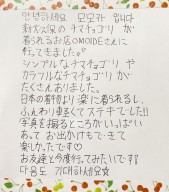 안녕하세요 모모카 입니다
新大久保のチマチョゴリが
着られるお店OMOIDEさんに
行ってきました♡
シンプルなチマチョゴリや
カラフルなチマチョゴリが
たくさんありました。
日本の着物より楽に着られるし、
ふんわり軽くてステキでした!!
写真を撮るところがいっぱい
あってお出かけもできて
楽しかったです♡
お友達と今度行ってみたいです!!
다음도 기대하세요☆